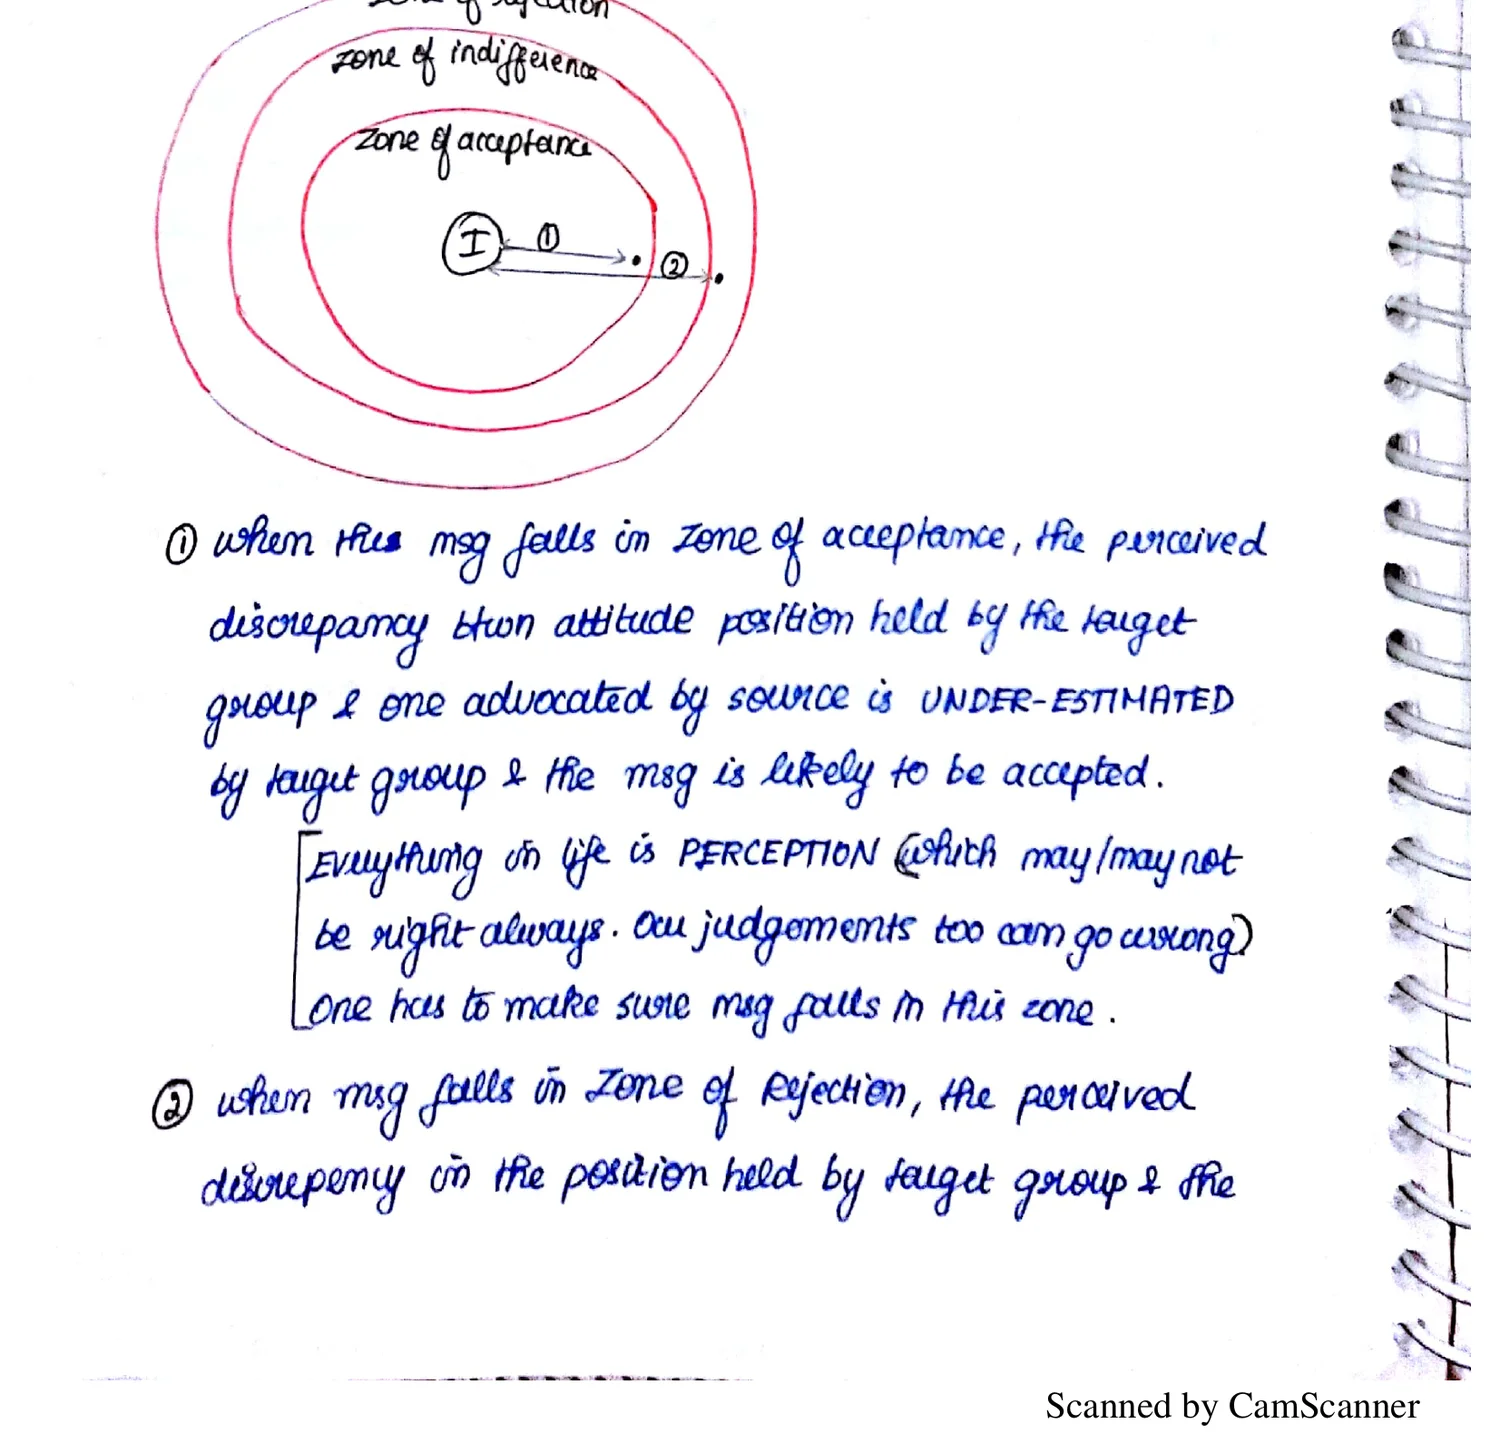 zone of rejection
zone of indifference
zone of acceptance
I
①
②
① when this msg falls in zone of acceptance, the perceived
discrepancy btwn attitude position held by the target
group & one advocated by source is UNDER-ESTIMATED
by target group & the msg is likely to be accepted.
Everything in life is PERCEPTION (which may/may not
be right always. Our judgements too can go wrong)
One has to make sure msg falls in this zone.
② when msg falls in zone of Rejection, the perceived
discrepency in the position held by target group & the
Scanned by CamScanner